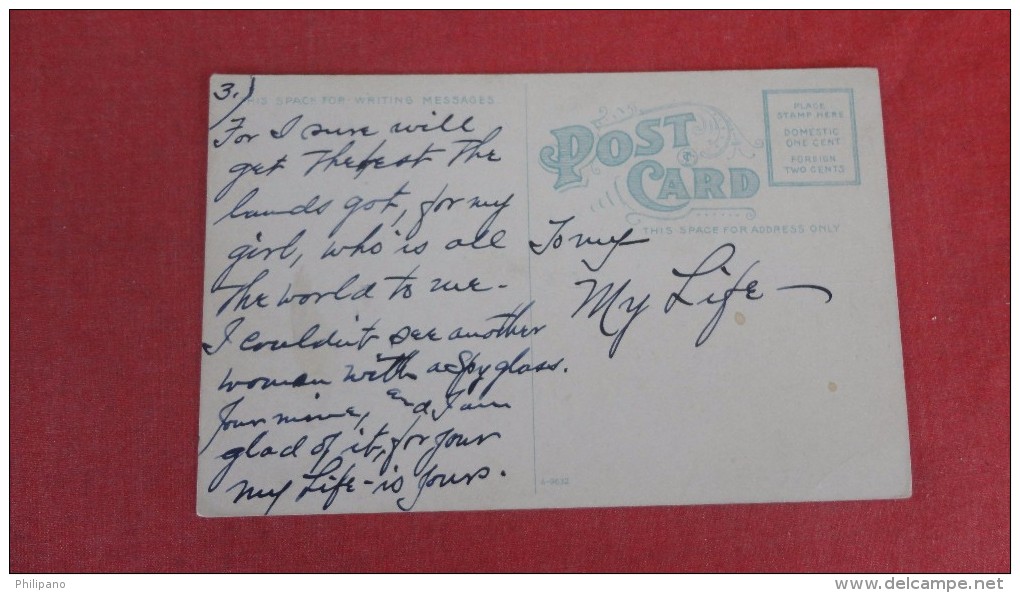 3.)
THIS SPACE FOR WRITING MESSAGES
For I sure will
get the best the
lands got, for my
girl, who is all
the world to me -
I couldn't see another
woman with a Spy glass.
Your mine, and I am
glad of it, for your
my Life - is yours.
POST CARD
PLACE
STAMP HERE
DOMESTIC
ONE CENT
FOREIGN
TWO CENTS
THIS SPACE FOR ADDRESS ONLY
To my
My Life -
Philipano
www.delcampe.net